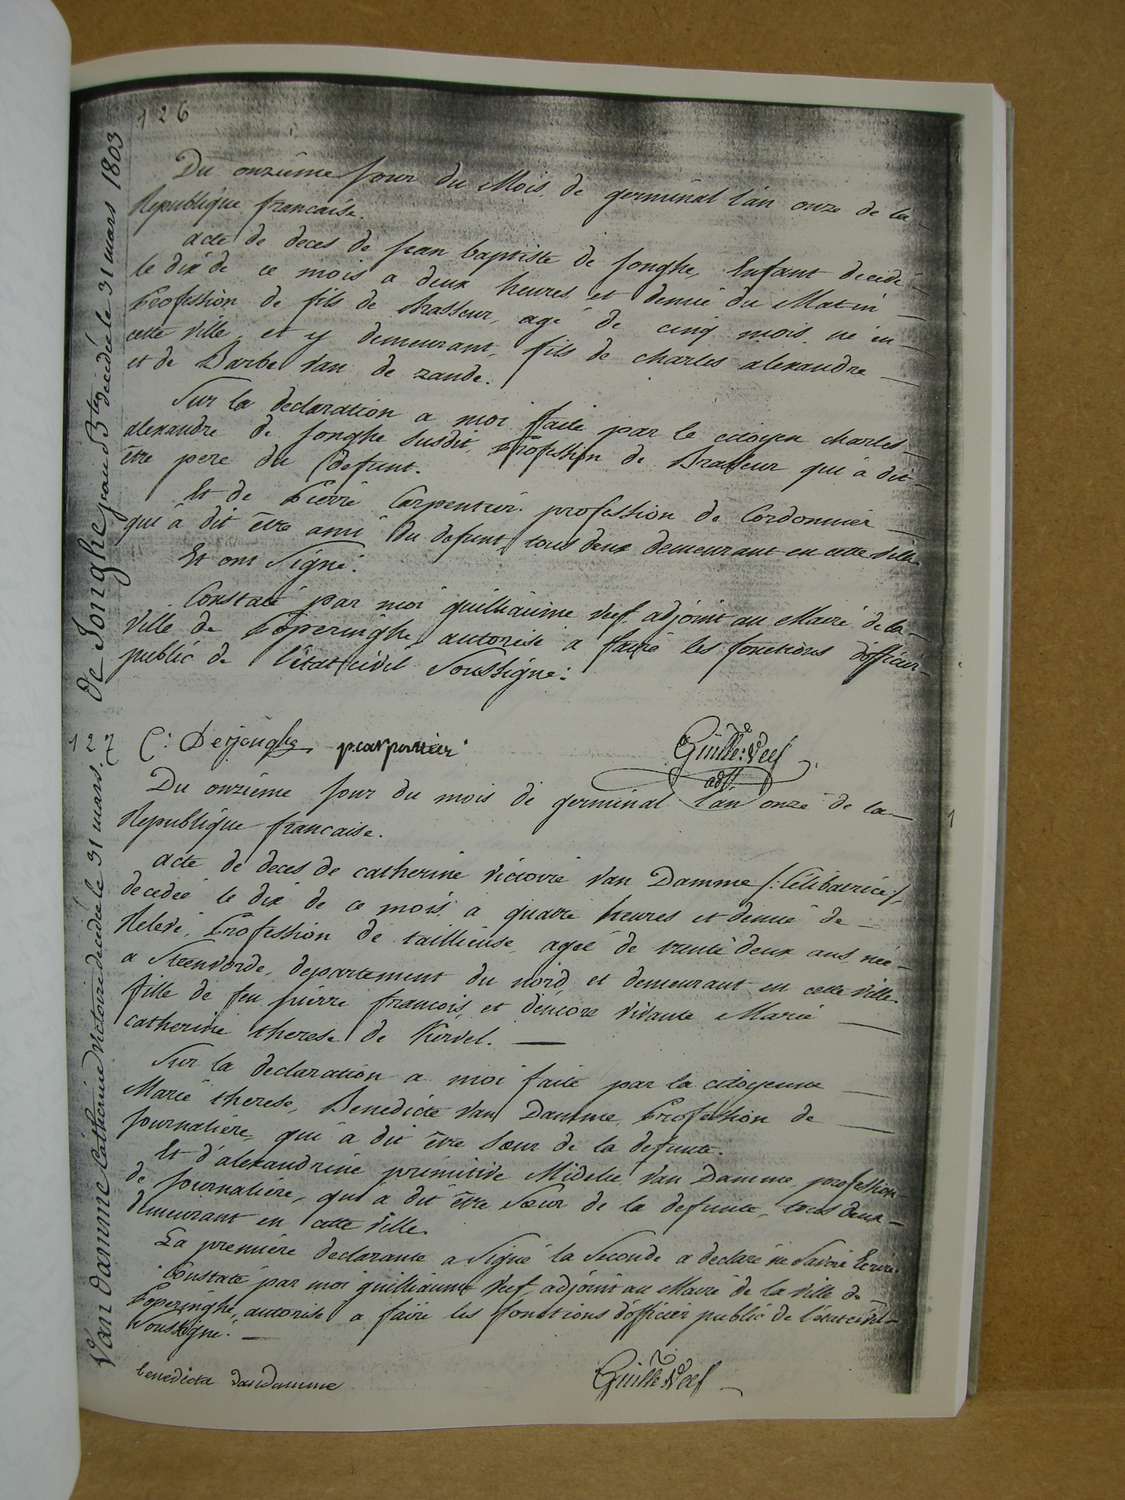 126
de Jonghe jean Bte decédée le 31 mars 1803
Du onzième jour du Mois de germinal l'an onze de la
Republique francaise.
acte de deces de jean baptiste de jonghe Enfant decedé
le dix de ce mois a deux heures et demié du Matin
Profession de fils de Brasseur, agé de cinq mois, né en
cette ville et y demeurant, fils de charles alexandre
et de Barbe Van de zande.
Sur la declaration a moi faite par le citoyen charles
alexandre de Jonghe susdit, Profession de Brasseur qui à dit
être pere du defunt.
Et de Pierre Carpentier profession de Cordonnier
qui à dit être ami du defunt, tous deux demeurant en cette ville
Et ont Signé.
Constaté par moi guilliaume Veef adjoint au Maire de la
Ville de Poperinghe, autorisé a faire les fonctions d'officier
public de l'état civil Soussigné:
C: Dejonghe p carpentier Guille: Veef
adjt.
127
Van Damme Catherine Victoire decedée le 31 mars.
Du onzième Jour du mois de germinal l'an onze de la
Republique francaise.
acte de deces de catherine Victoire Van Damme /: Celibatrice /
decedée le dix de ce mois a quatre heures et demié de
Relevé, Profession de taillieuse, agée de trente deux ans, née
a Steenvorde, departement du nord et demeurant en cette ville
fille de feu pierre francois, et dencore vivante Marie
catherine therese de Kervel.
Sur la declaration a moi faite par la citoyenne
Marie therese, Benedicte Van Damme, Profession de
Journaliere, qui à dit être Sœur de la defunte.
Et d'alexandrine primitive Midelie Van Damme, profession
de Journaliere, qui à dit être Sœur de la defunte, tous deux
demeurant en cette ville.
La première declarante a Signé la Seconde a declaré ne Savoir Ecrire
Constaté par moi guilliaume Veef, adjoint au Maire de la ville de
Poperinghe, autorisé a faire les fonctions d'officier public de l'état civil
Soussigné.
benedicta van damme Guille Veef